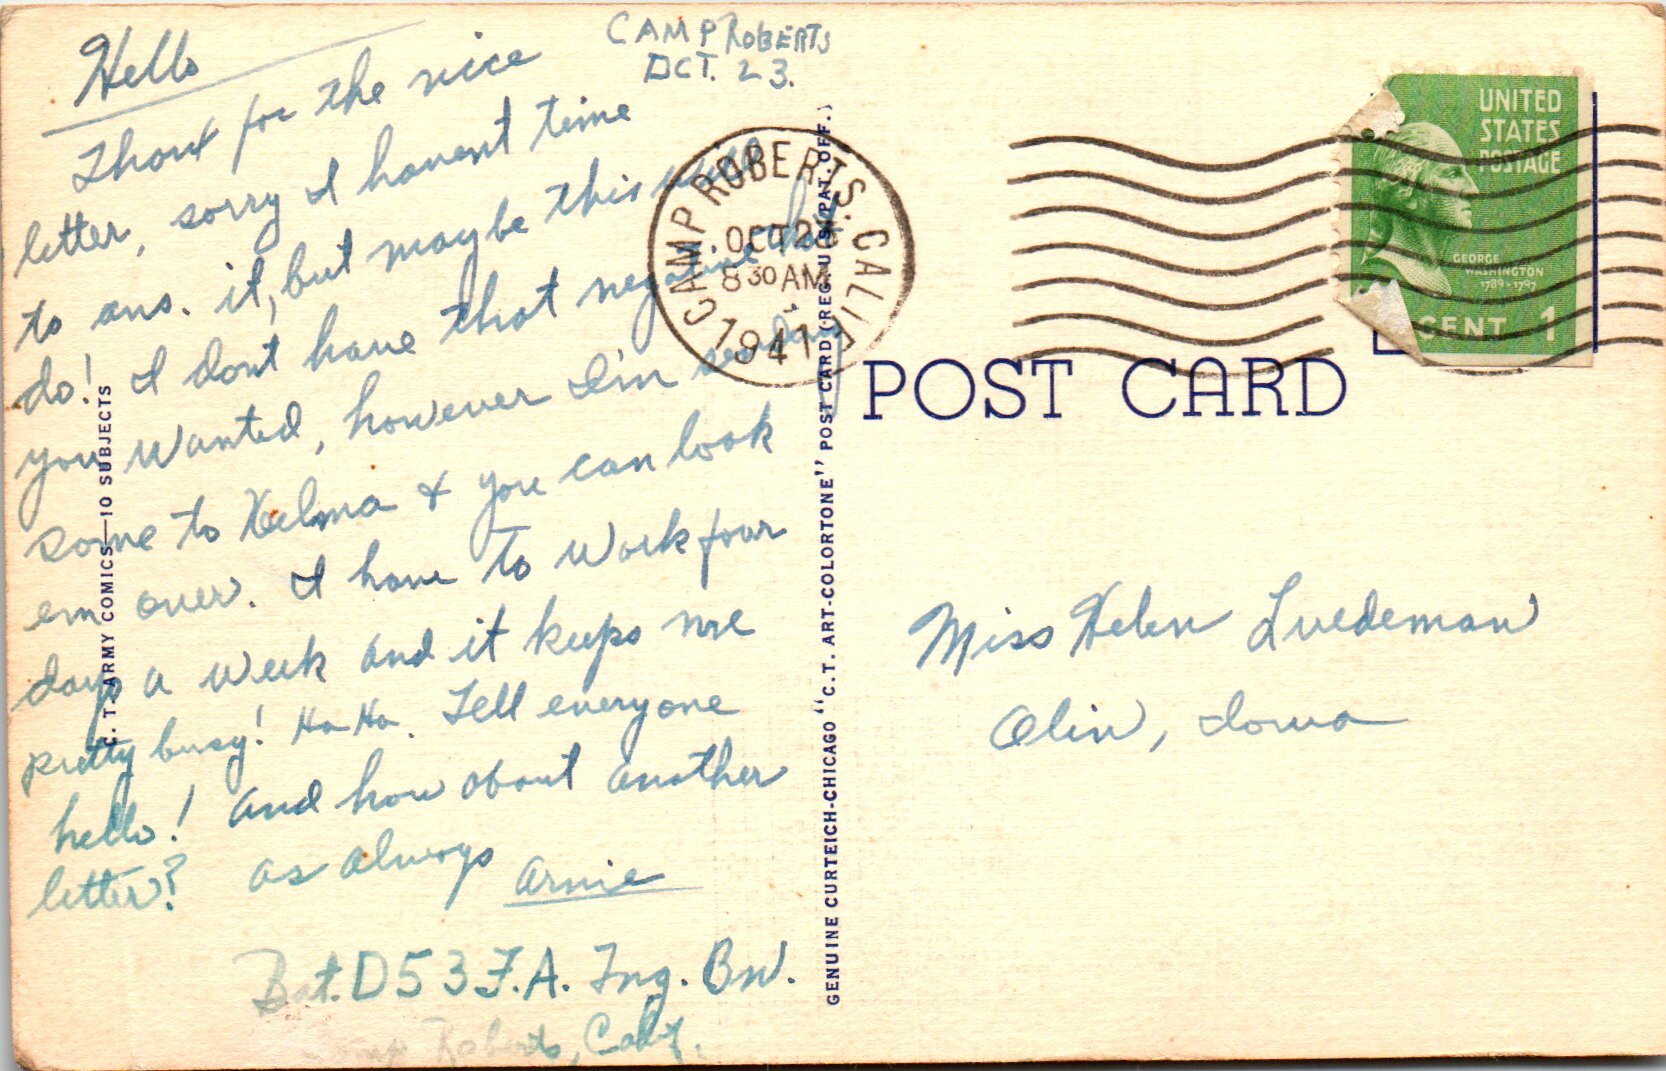 CAMP ROBERTS
OCT. 23.
Hello
Thanx for the nice
letter, sorry I havent time
to ans. it, but maybe this will
do! I dont have that negative that
you wanted, however I'm sending
some to Velma & you can look
em over. I have to work four
days a week and it keeps me
pretty busy! Ha Ha. Tell everyone
hello! and how about another
letter? as always Arnie
Bat. D 53 F.A. Tng. Bn.
Camp Roberts, Calif.
C. T. ARMY COMICS—10 SUBJECTS
CAMP ROBERTS. CALIF.
OCT 2
8 30 AM
1941
GENUINE CURTEICH-CHICAGO "C.T. ART-COLORTONE" POST CARD (REG. U.S. PAT. OFF.)
UNITED
STATES
POSTAGE
GEORGE
WASHINGTON
1789-1797
CENT 1
POST CARD
Miss Helen Luedeman
Olin, Iowa